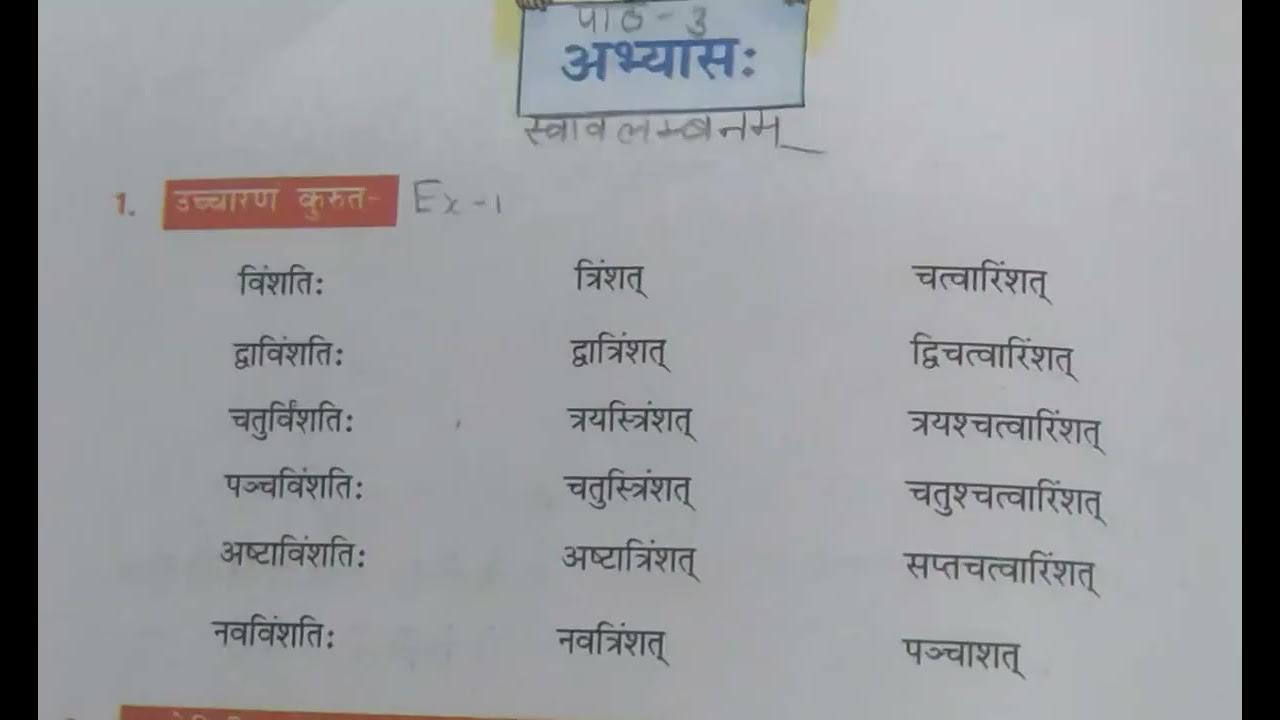 पाठ - 3
अभ्यासः
स्वावलम्बनम्
1. उच्चारणं कुरुत- Ex-1
विंशतिः त्रिंशत् चत्वारिंशत्
द्वाविंशतिः द्वात्रिंशत् द्विचत्वारिंशत्
चतुर्विंशतिः त्रयस्त्रिंशत् त्रयश्चत्वारिंशत्
पञ्चविंशतिः चतुस्त्रिंशत् चतुश्चत्वारिंशत्
अष्टाविंशतिः अष्टात्रिंशत् सप्तचत्वारिंशत्
नवविंशतिः नवत्रिंशत् पञ्चाशत्